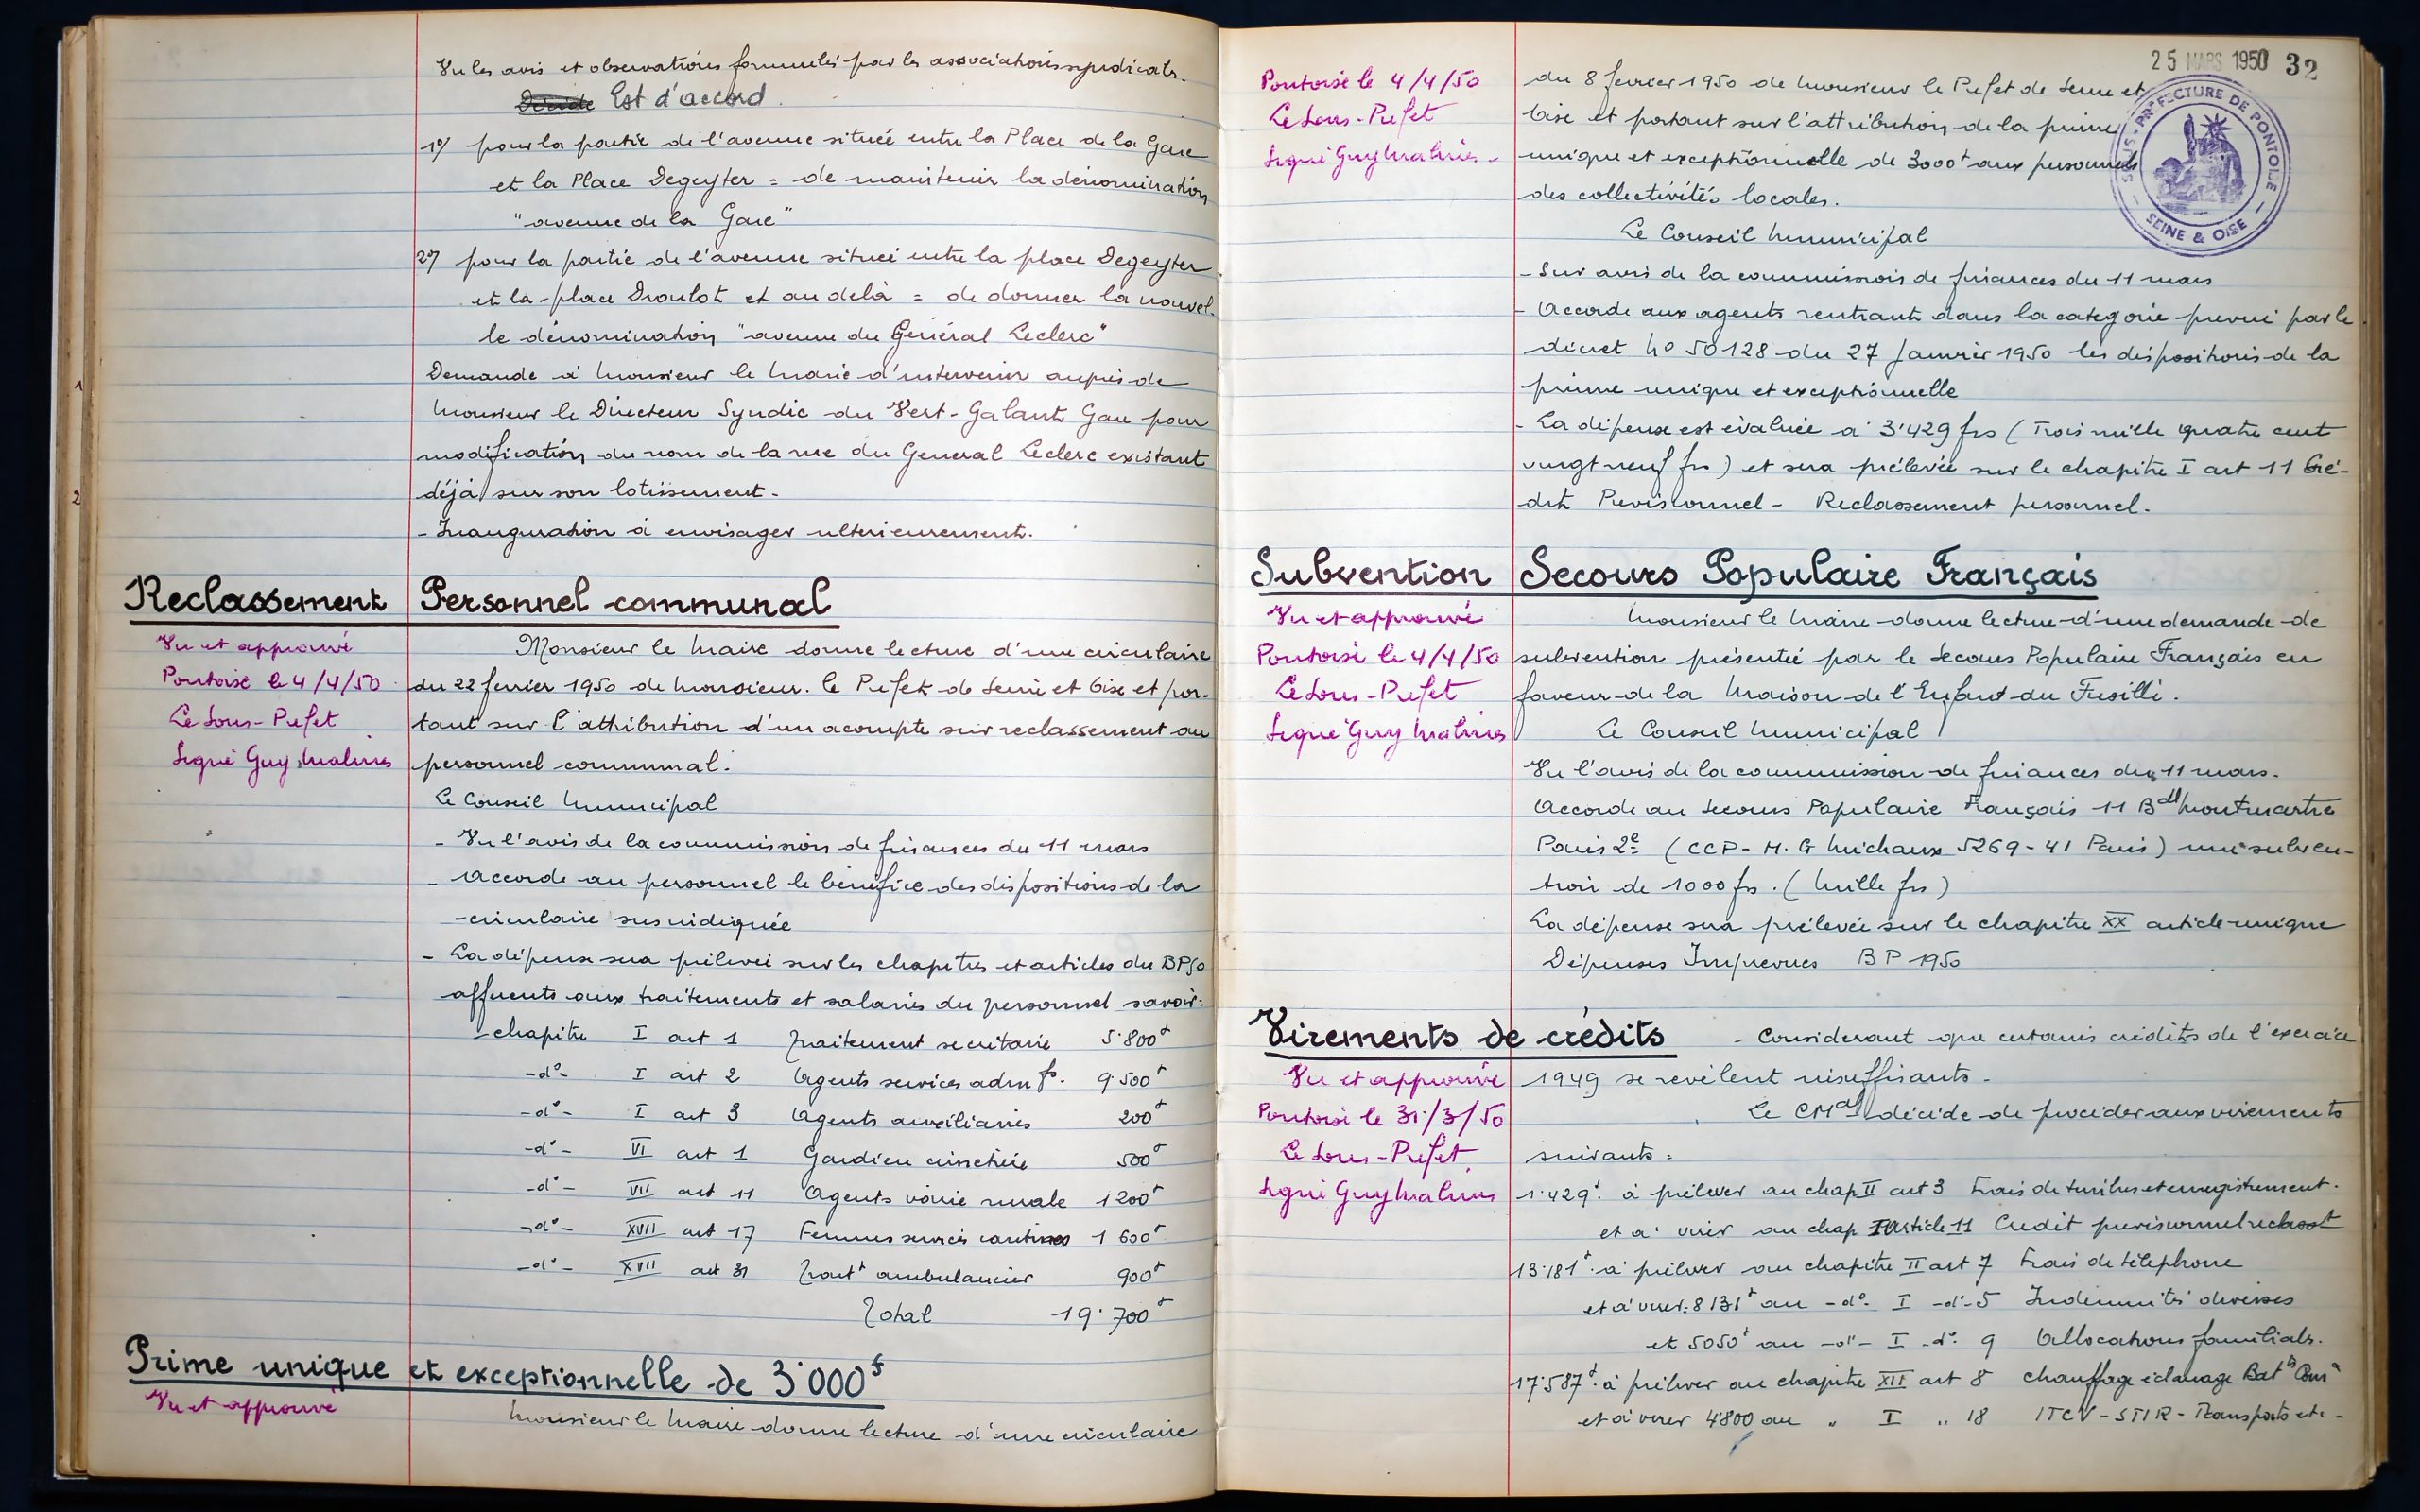 Vu les avis et observations formulés par les associations syndicals.
Décide Est d'accord
1°/ pour la partie de l'avenue située entre la Place de la Gare
et la Place Degeyter = de maintenir la dénomination
"avenue de la Gare"
2°/ pour la partie de l'avenue située entre la place Degeyter
et la place Droulot et au delà = de donner la nouvel-
le dénomination "avenue du Général Leclerc"
Demande à Monsieur le Maire d'intervenir auprès de
Monsieur le Directeur Syndic du Vert-Galant Gare pour
modification du nom de la rue du General Leclerc existant
déjà sur son lotissement.
- Inauguration à envisager ultérieurement.
1
2
Reclassement Personnel communal
Vu et approuvé
Pontoise le 4/4/50
Le Sous-Prefet
Signé Guy Malines
Monsieur le Maire donne lecture d'une circulaire
du 22 fevrier 1950 de Monsieur le Prefet de Seine et Oise et por-
tant sur l'attribution d'un acompte sur reclassement au
personnel communal.
Le Conseil Municipal
- Vu l'avis de la commission de finances du 11 mars
- accorde au personnel le bénéfice des dispositions de la
circulaire susindiquée
- La dépense sera prélevée sur les chapitres et articles du BP50
affuents aux traitements et salaires du personnel savoir:
- chapitre I art 1 Traitement secrétaire 5.800f
-d°- I art 2 Agents services admfs. 9.500f
-d°- I art 3 Agents auxiliaires 200f
-d°- VI art 1 Gardien cimetière 500f
-d°- VII art 11 Agents voirie rurale 1 200f
-d°- XVII art 17 Femmes services cantines 1 600f
-d°- XVII art 31 Trait^t ambulancier 900f
Total 19.700f
Prime unique et exceptionnelle de 3.000f
Vu et approuvé
Monsieur le Maire donne lecture d'une circulaire
25 MARS 1950 32
SOUS-PRÉFECTURE DE PONTOISE
SEINE & OISE
Pontoise le 4/4/50
Le Sous-Prefet
Signé Guy Malines
du 8 fevrier 1950 de Monsieur le Prefet de Seine et
Oise et portant sur l'attribution de la prime
unique et exceptionnelle de 3000f aux personnels
des collectivités locales.
Le Conseil Municipal
- Sur avis de la commission de finances du 11 mars
- Accorde aux agents rentrant dans la categorie prevue par le
décret No 50128 du 27 Janvier 1950 les dispositions de la
prime unique et exceptionnelle
- La dépense est évaluée à 3.429 frs (Trois mille quatre cent
vingt neuf frs) et sera prélevée sur le chapitre I art 11 Cré-
dit Previsionnel - Reclassement personnel.
Subvention Secours Populaire Français
Vu et approuvé
Pontoise le 4/4/50
Le Sous-Prefet
Signé Guy Malines
Monsieur le Maire donne lecture d'une demande de
subvention présentée par le Secours Populaire Français en
faveur de la Maison de l'Enfant du Fusillé.
Le Conseil Municipal
Vu l'avis de la commission de finances du 11 mars.
Accorde au Secours Populaire Français 11 Bd Montmartre
Paris 2e (CCP - M. G Michaux 5269-41 Paris) une subven-
tion de 1000 frs. (Mille frs)
La dépense sera prélevée sur le chapitre XX article unique
Dépenses Imprevues BP 1950
Virements de crédits
Vu et approuvé
Pontoise le 31/3/50
Le Sous-Prefet
Signé Guy Malines
- Considerant que certains crédits de l'exercice
1949 se revèlent insuffisants.
Le CMal décide de proceder aux virements
suivants:
1.429f. à prélever au chap II art 3 Frais de timbres et enregistrement.
et à virer au chap I article 11 Credit previsionnel reclasst
13.181f. à prélever au chapitre II art 7 Frais de téléphone
et à virer: 8131f au -d°- I -d°- 5 Indemnités diverses
et 5050f au -d°- I -d°- 9 Allocations familials.
17.587f. à prélever au chapitre XII art 8 chauffage éclairage Batts Comx
et à virer 4800 au " I " 18 ITCV - STIR - Transports etc -